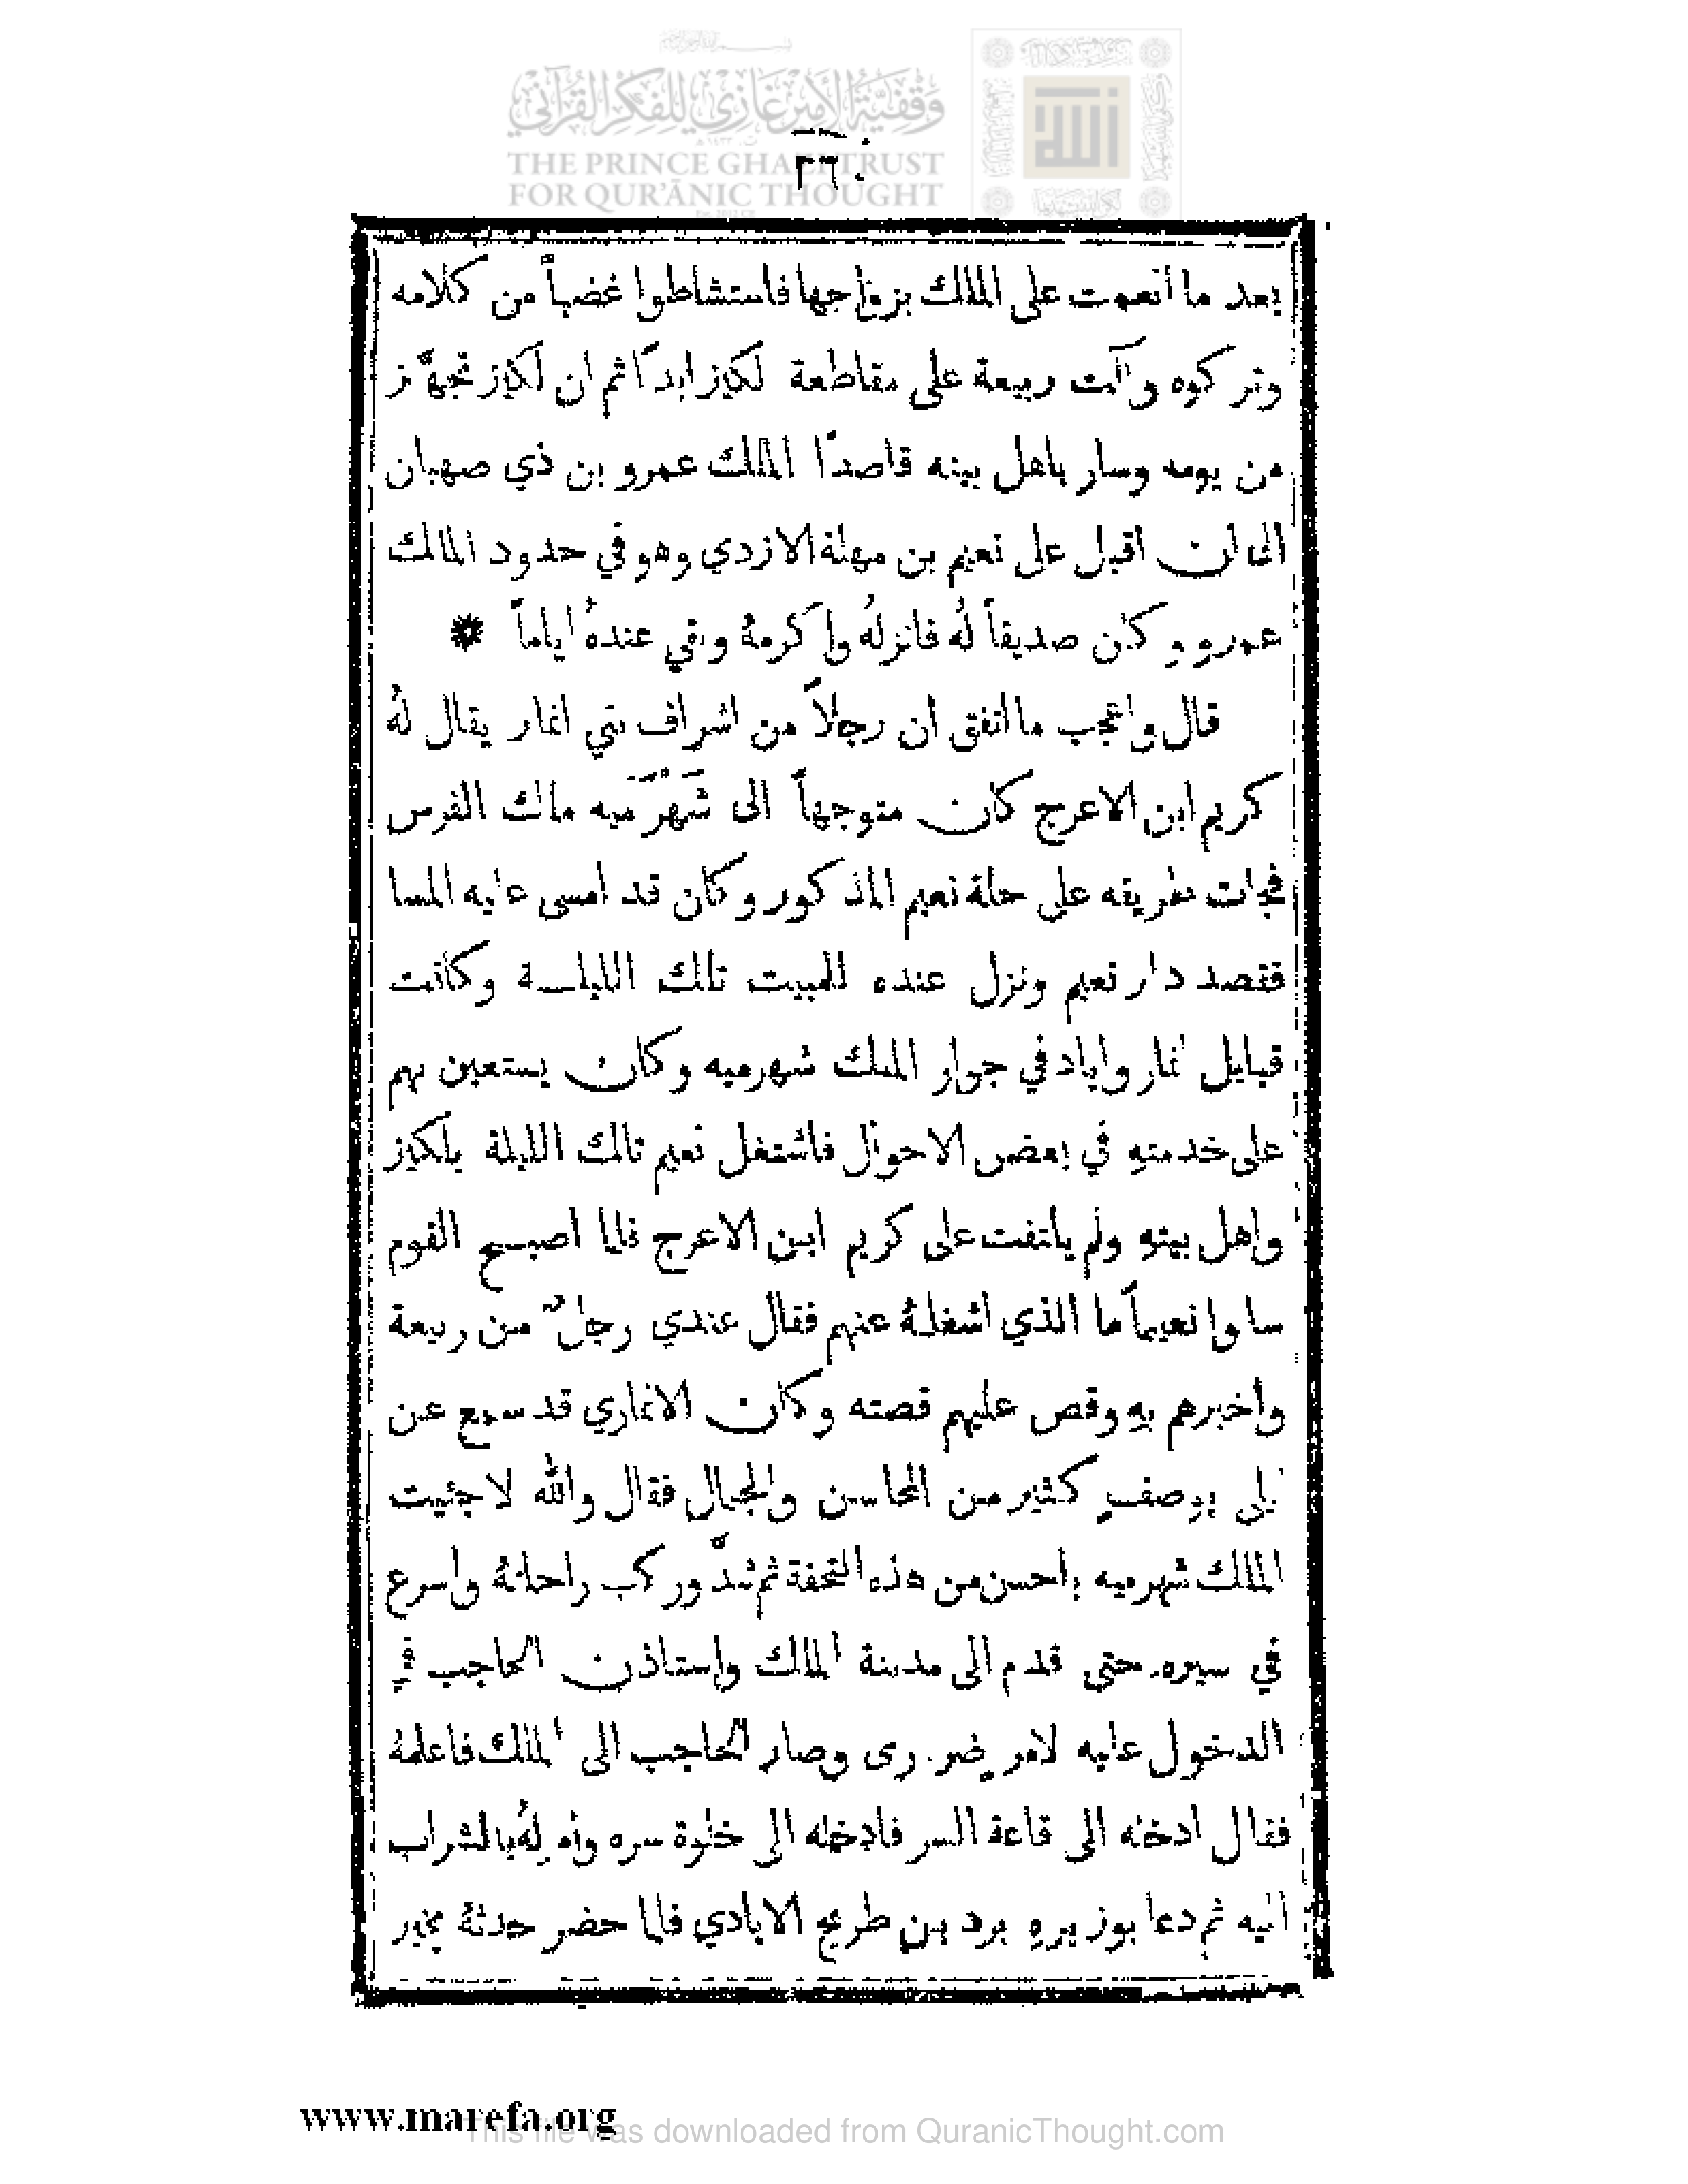 وقفية الأمير غازي للفكر القرآني
THE PRINCE GHAZI TRUST
FOR QUR'ĀNIC THOUGHT
٢٦٠
بعد ما انعمت على الملك بزواجها فاستشاطوا غضباً من كلامه
وتركوه وآلت ربيعة على مقاطعة لكيز ابداً ثم ان لكيز تجهّز
من يومه وسار باهل بيته قاصداً الملك عمرو بن ذي صهبان
الى ان اقبل على نعيم بن مهلة الازدي وهو في حدود الملك
عمرو وكان صديقاً لهُ فانزلهُ واكرمهُ وبقي عندهُ اياماً *
قال واعجب ما اتفق ان رجلاً من اشراف بني انمار يقال لهُ
كريم ابن الاعرج كان متوجهاً الى شَهْرَميه ملك الفرس
فجات طريقه على حلة نعيم المذكور وكان قد امسى عليه المسا
فقصد دار نعيم ونزل عنده للمبيت تلك الليلة وكانت
قبايل انمار واياد في جوار الملك شهرميه وكان يستعين بهم
على خدمتهِ في بعض الاحوال فاشتغل نعيم تلك الليلة بلكيز
واهل بيتهِ ولم يلتفت على كريم ابن الاعرج فلما اصبح القوم
سالوا نعيماً ما الذي اشغلهُ عنهم فقال عندي رجلٌ من ربيعة
واخبرهم بهِ وقص عليهم قصته وكان الانماري قد سمع عن
ليلى بوصفٍ كثير من المحاسن والجمال فقال والله لا جئيت
الملك شهرميه باحسن من هذه التحفة ثم شدَّ وركب راحلتهُ واسرع
في سيره حتى قدم الى مدينة الملك واستاذن الحاجب في
الدخول عليه لامرٍ ضروري وصار الحاجب الى الملك فاعلمهُ
فقال ادخله الى قاعة السر فادخله الى خلوة سره وأمر لهُ بالشراب
اليه ثم دعا بوزيرهِ برد بن طريح الايادي فلما حضر حدثهُ بخبر
www.marefa.org
This file was downloaded from QuranicThought.com